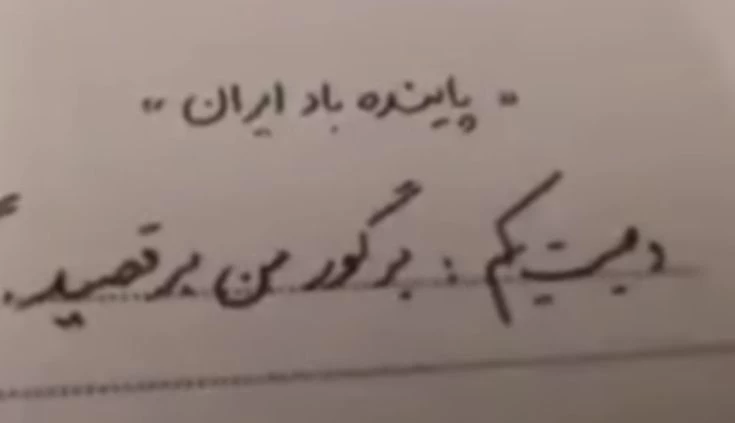 "پاینده باد ایران"
وصیتم : بر گور من برقصید.